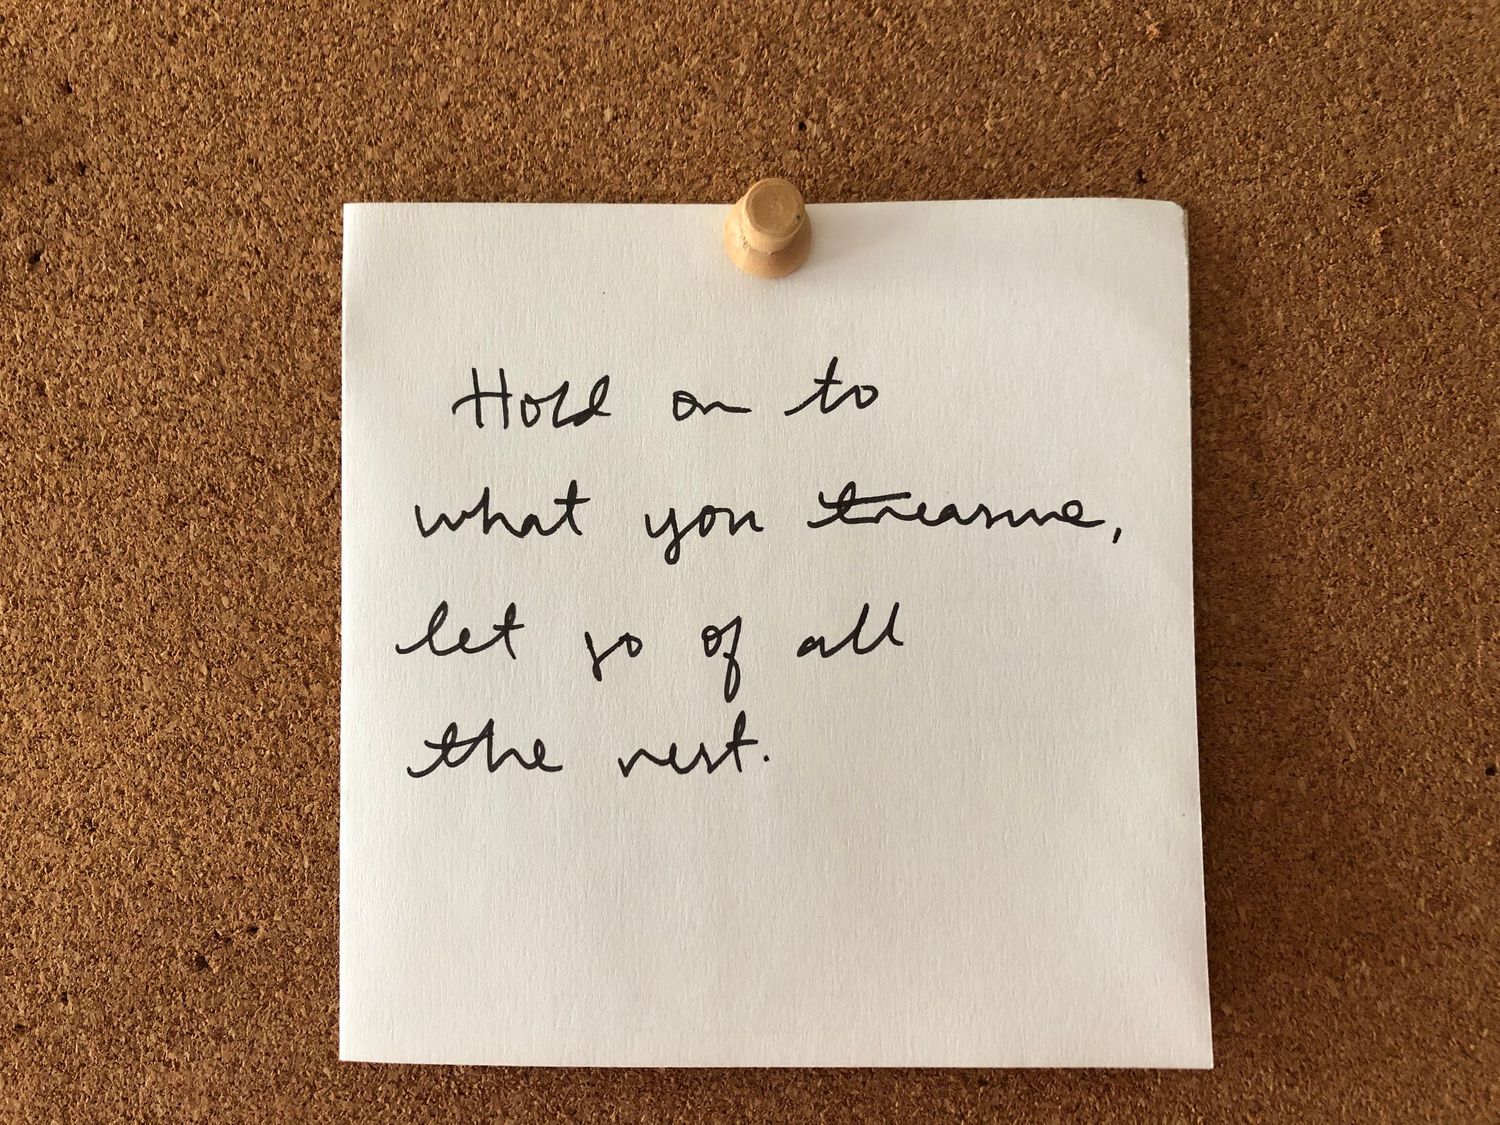 Hold on to
what you treasure,
let go of all
the rest.